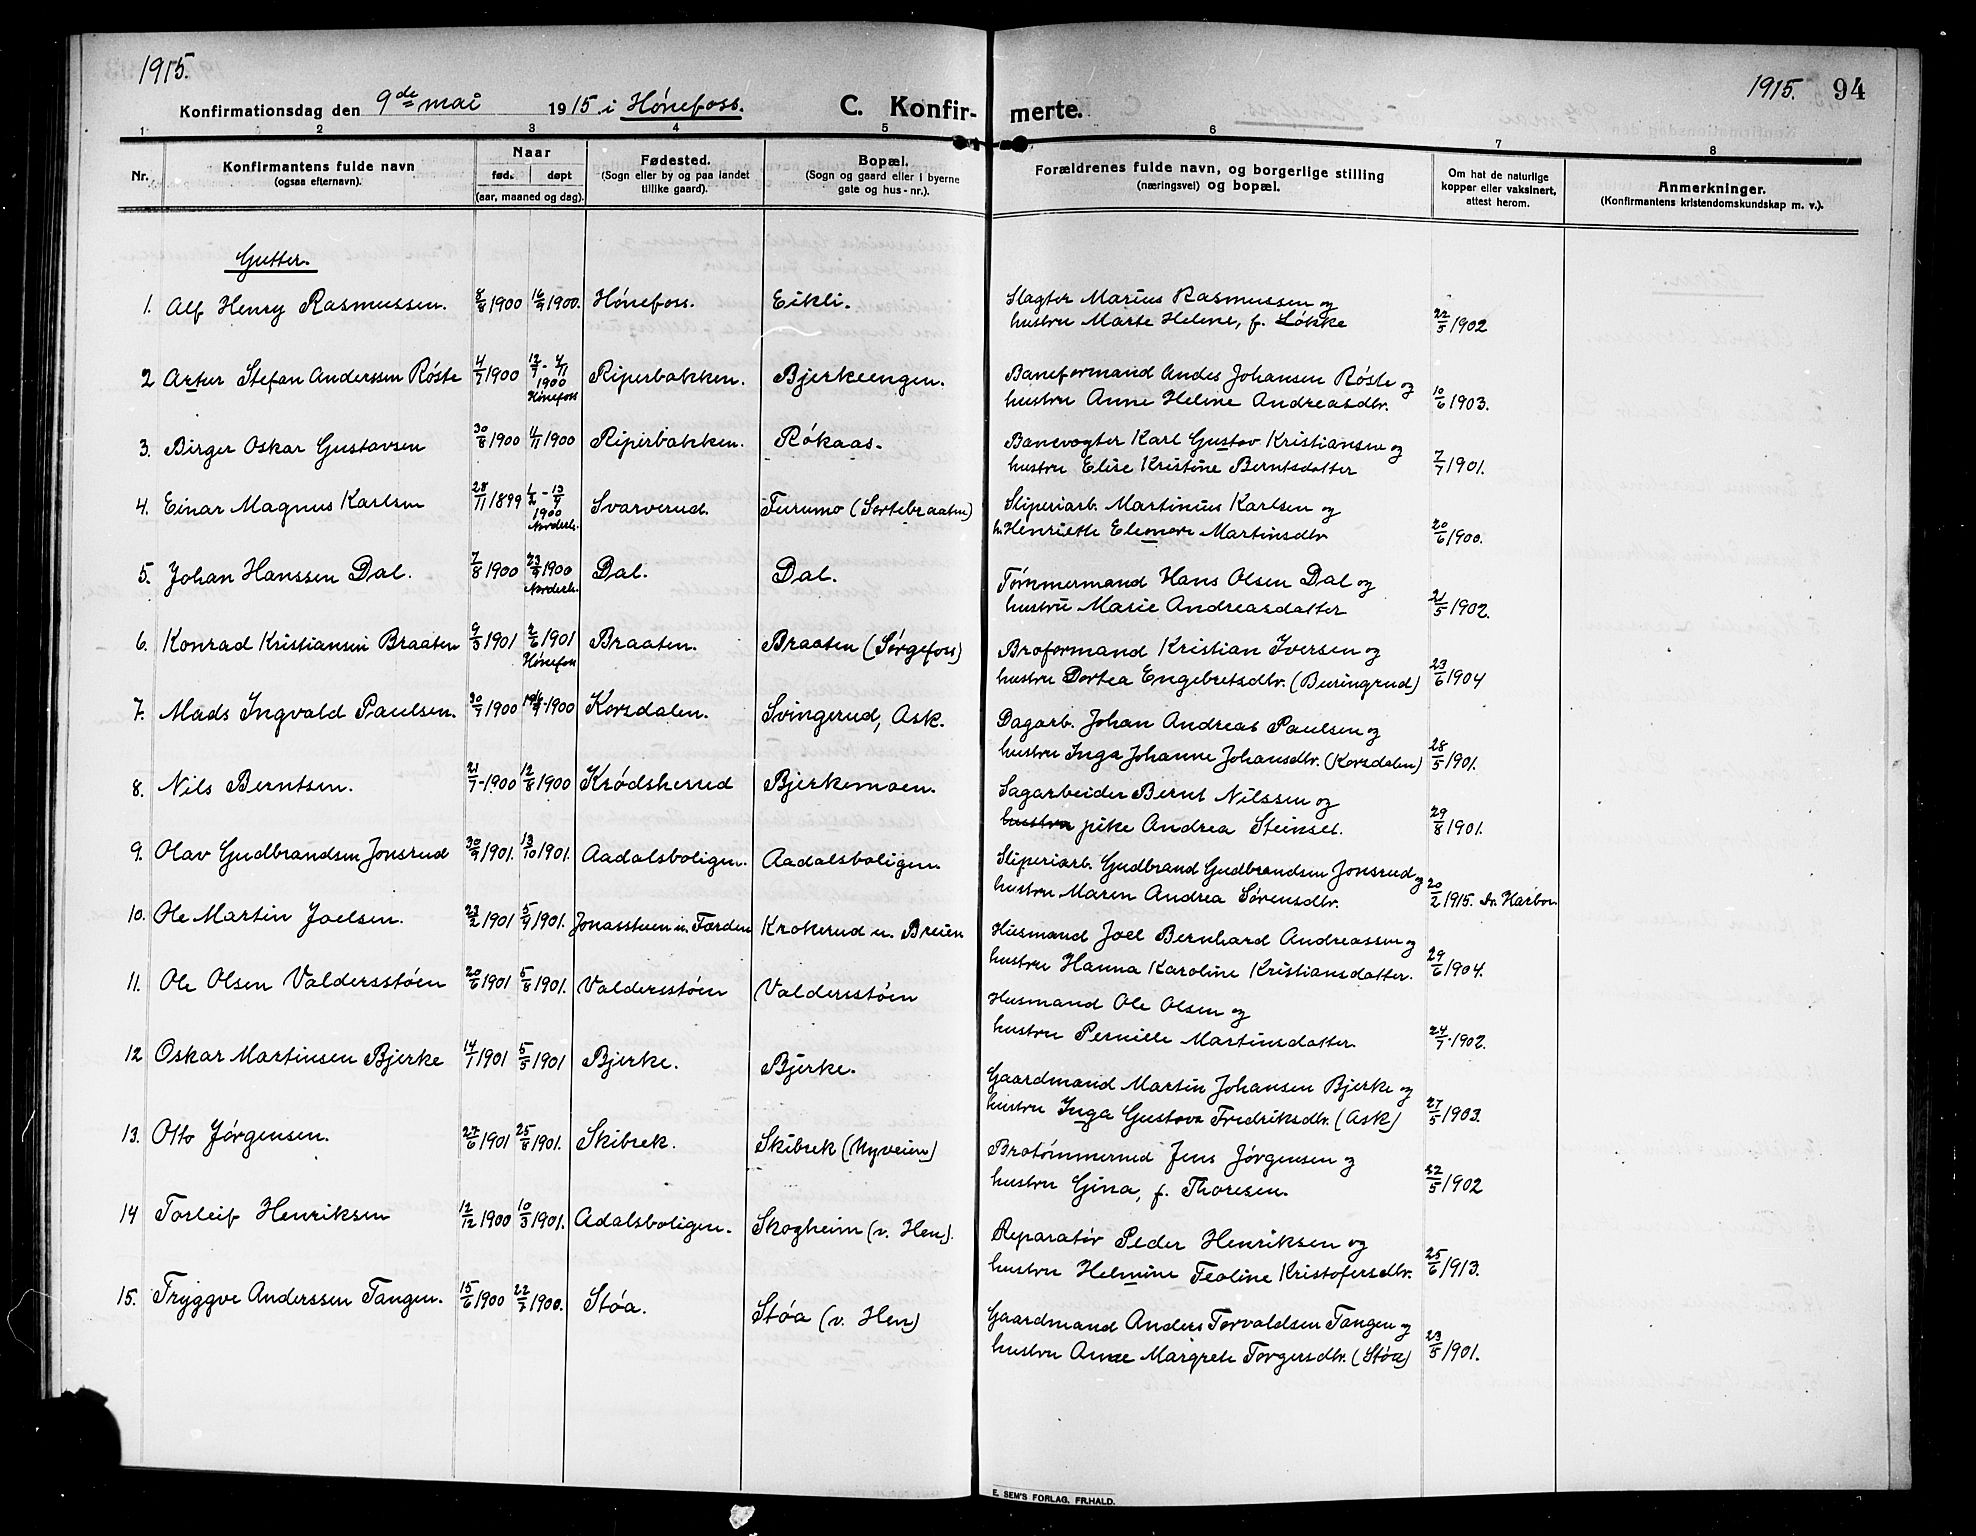 1915.
1915. 94
Konfirmationsdag den 9de mai 1915 i Hønefoss. C. Konfirmerte.
1 2 3 4 5 6 7 8
Nr.
Konfirmantens fulde navn
(ogsaa efternavn).
Naar
fød. døpt
(aar, maaned og dag).
Fødested.
(Sogn eller by og paa landet
tillike gaard).
Bopæl.
(Sogn og gaard eller i byerne
gate og hus-nr.).
Forældrenes fulde navn, og borgerlige stilling
(næringsvei) og bopæl.
Om hat de naturlige
kopper eller vaksinert,
attest herom.
Anmerkninger.
(Konfirmantens kristendomskundskap m. v.).
Gutter.
1. Alf Henry Rasmussen. 8/8 1900 16/9 1900. Hønefoss. Eikli. Slagter Marius Rasmussen og
hustru Marte Helene, f. Løkke 22/5 1902
2 Artur Stefan Anderssen Røste 4/7 1900 12/7 - 4/11 1900 Hønefoss Riperbakken. Bjerkeengen. Baneformand Andes Johansen Røste og
hustru Anne Helene Andreasdtr. 10/6 1903.
3. Birger Oskar Gustavsen 30/8 1900 4/11 1900 Riperbakken. Røkaas. Banevogter Karl Gustav Kristiansen og
hustru Elise Kristine Berntsdatter 7/7 1901.
4. Einar Magnus Karlsen 28/11 1899 1/2 - 13/4 1900 Norderh. Svarverud. Furumo (Sortebraaten) Sliperiarb. Martinius Karlsen og
h. Henriette Eleonore Martinsdtr 20/6 1900.
5. Johan Hanssen Dal. 7/8 1900 23/9 1900 Norderh. Dal. Dal. Tømmermand Hans Olsen Dal og
hustru Marie Andreasdatter 21/5 1902.
6. Konrad Kristiansen Braaten 9/3 1901 2/6 1901 Hønefoss Braaten. Braaten (Sørgefoss) Broformand Kristian Iversen og
hustru Dortea Engebretsdtr. (Buringrud) 23/6 1904
7. Mads Ingvald Paulsen. 30/7 1900 1900 Korsdalen. Svingerud, Ask. Dagarb. Johan Andreas Paulsen og
hustru Inga Johanne Johansdtr. (Korsdalen) 28/5 1901.
8. Nils Berntsen. 21/7 - 1900 12/8 1900 Krødsherred Bjerkemoen. Sagarbeider Bernt Nilssen og
hustru pike Andrea Steinset. 29/8 1901.
9. Olav Gudbrandsen Jonsrud 30/9 1901. 13/10 1901. Aadalsboligen. Aadalsboligen. Sliperiarb. Gudbrand Gudbrandsen Jonsrud og
hustru Maren Andrea Sørensdtr. 20/2 1915. dr. Harboe.
10. Ole Martin Joelsen. 23/2 1901 5/4 1901. Jonasstuen u. Færden Krokerud u. Breien Husmand Joel Bernhard Andreassen og
hustru Hanna Karoline Kristiansdatter. 29/6 1904.
11. Ole Olsen Valdersstøen 20/6 1901 5/8 1901. Valdersstøen Valdersstøen Husmand Ole Olsen og
hustru Pernille Martinsdatter. 24/7 - 1902.
12 Oskar Martinsen Bjerke 14/1 1901 5/5 1901 Bjerke. Bjerke. Gaardmand Martin Johansen Bjerke og
hustru Inga Gustava Fredriksdtr. (Ask) 27/5 1903.
13. Otto Jørgensen. 27/6 1901 25/8 1901. Skibrek. Skibrek (Nyveien) Brotømmermd Jens Jørgensen og
hustru Gina, f. Thoresen. 22/5 1902
14 Torleif Henriksen 12/12 1900 10/3 1901. Adalsboligen. Skogheim (v. Hen). Reparatør Peder Henriksen og
hustru Helmine Teoline Kristofersdtr. 25/6 1913.
15. Tryggve Anderssen Tangen. 15/6 1900 22/7 1900. Støa. Støa (v. Hen) Gaardmand Anders Torvaldsen Tangen og
hustru Anne Margrete Torgersdtr. (Støa) 23/5 1901.
E. SEM'S FORLAG, FR.HALD.